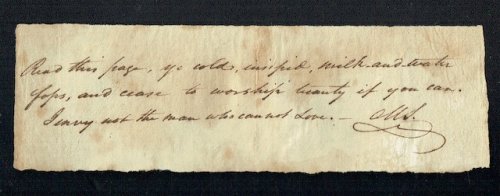 Read this page, ye cold, insipid, milk-and-water
fops, and cease to worship beauty if you can.
I envy not the man who cannot Love. — MS.